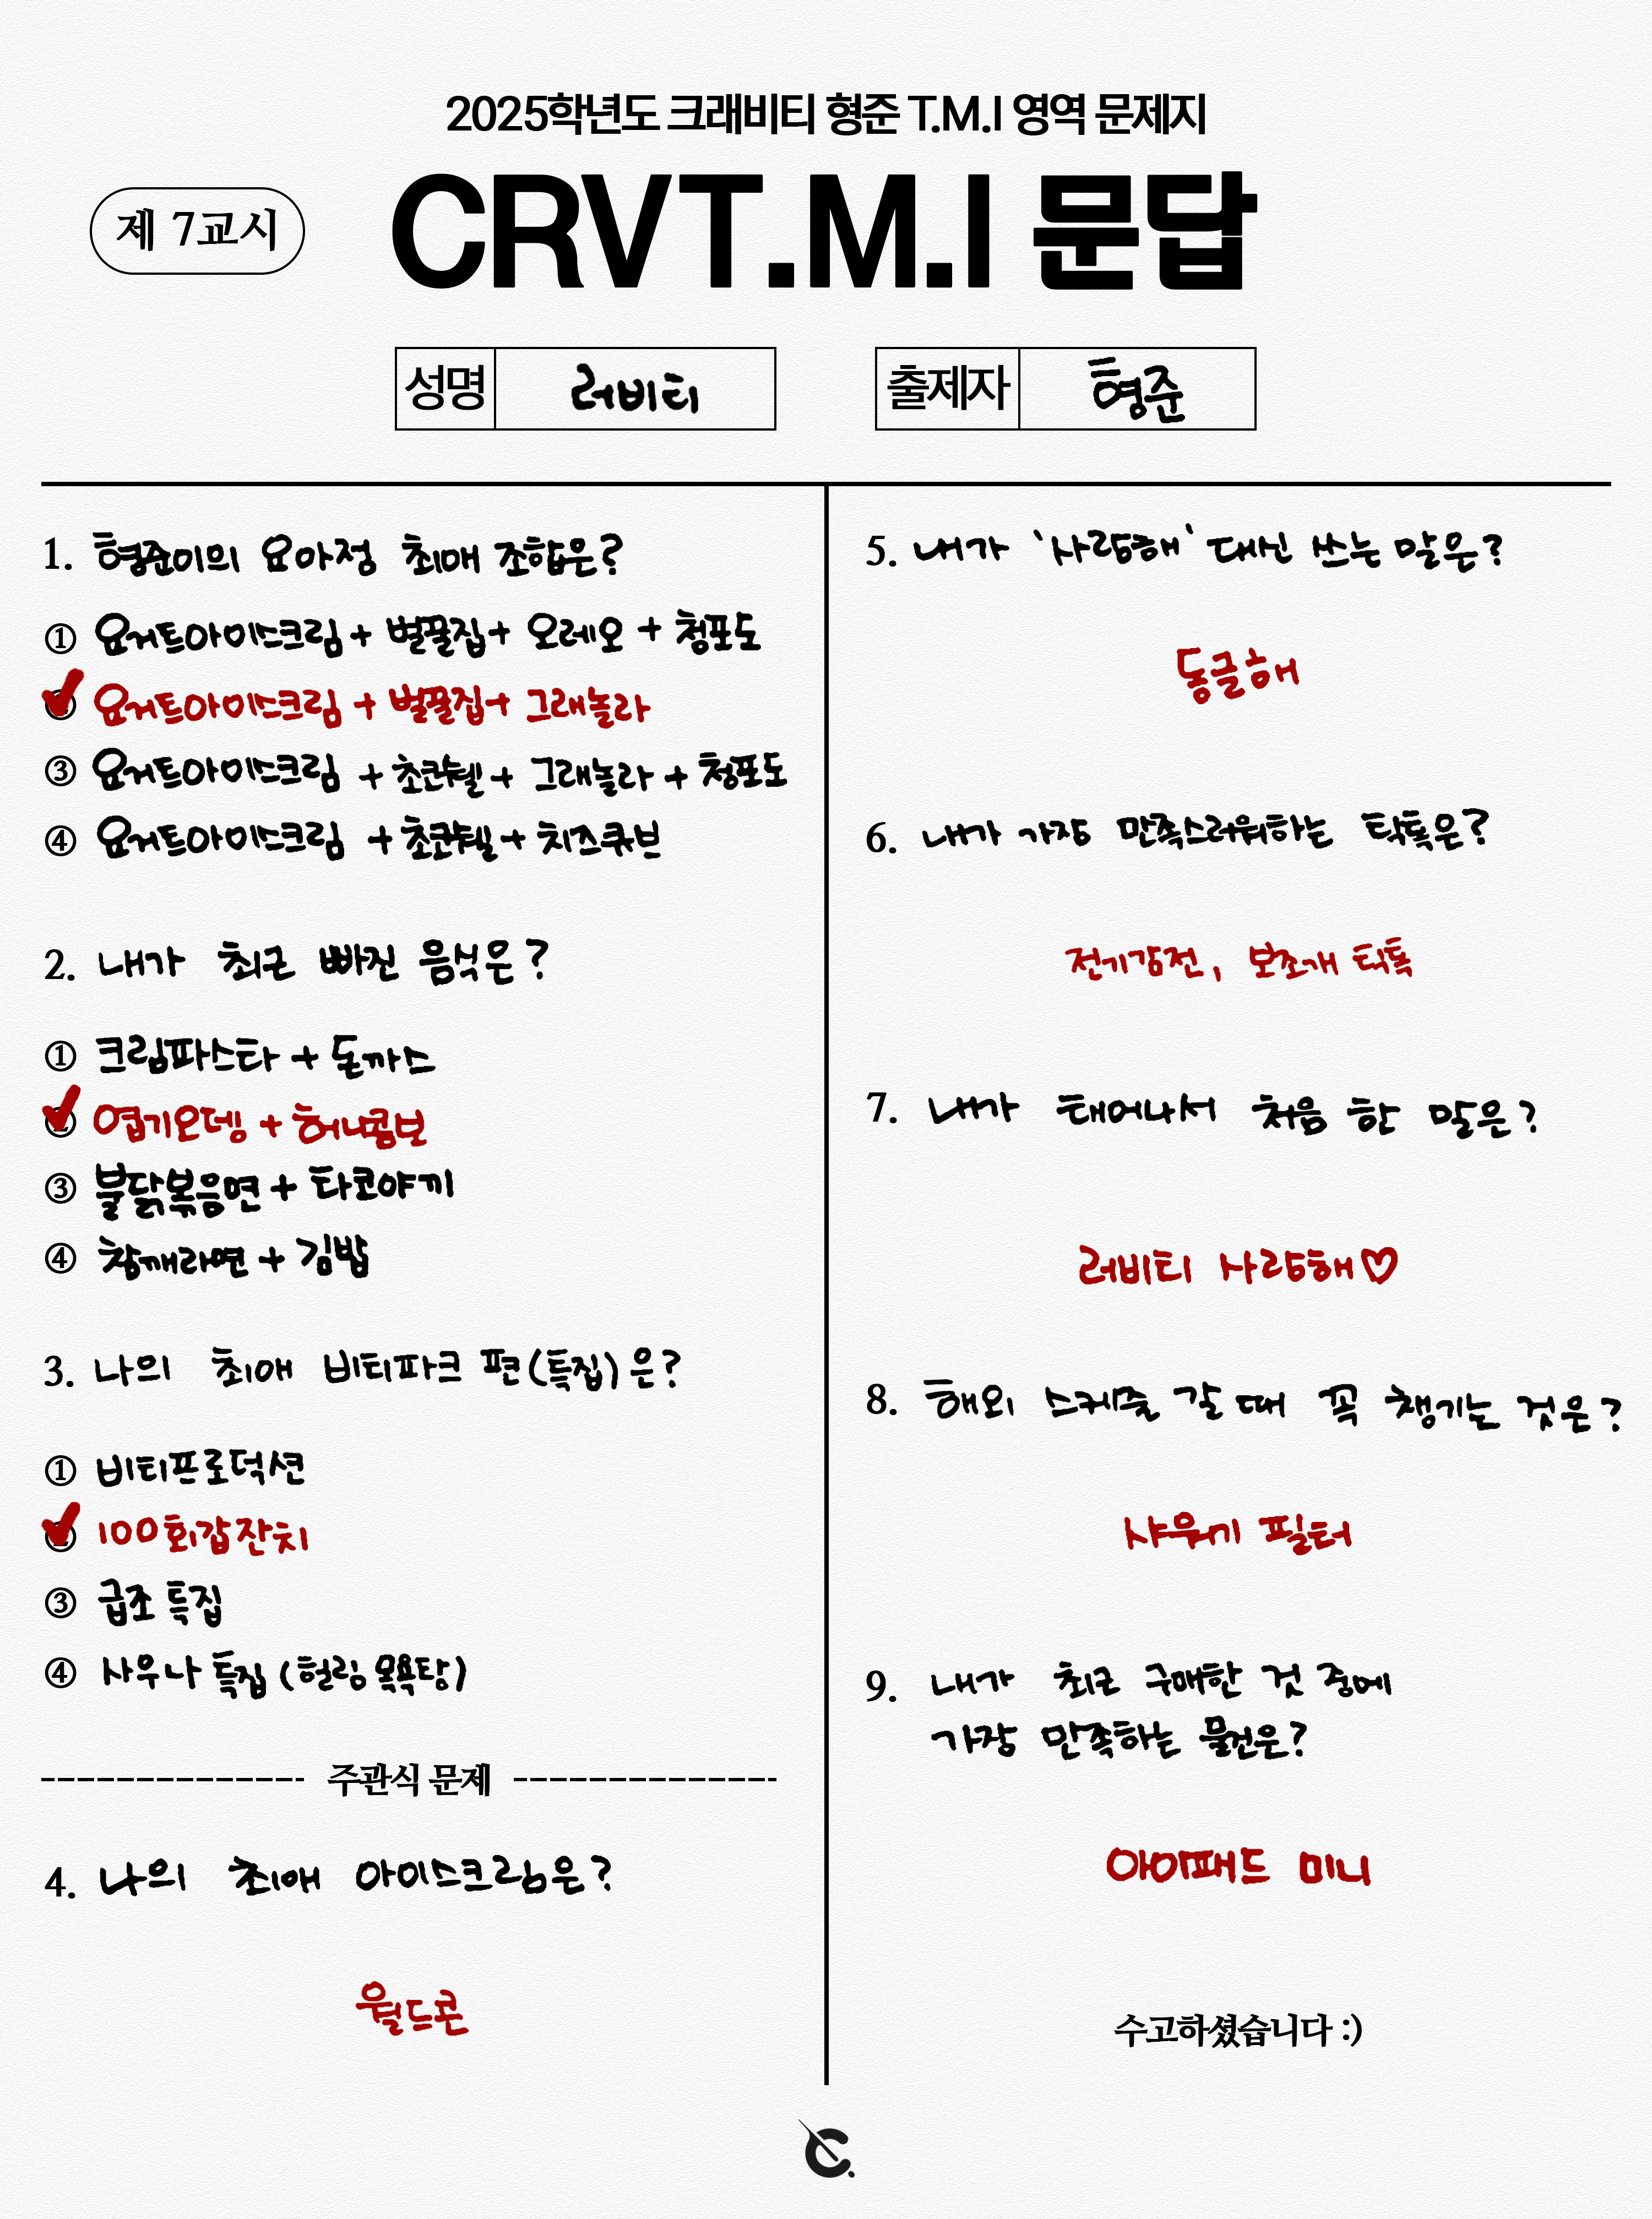 2025학년도 크래비티 형준 T.M.I 영역 문제지
제 7교시
CRVT.M.I 문답
성명 러비티
출제자 형준
1. 형준이의 요아정 최애 조합은?
① 요거트아이스크림 + 벌꿀집 + 오레오 + 청포도
② 요거트아이스크림 + 벌꿀집 + 그래놀라
③ 요거트아이스크림 + 초코쉘 + 그래놀라 + 청포도
④ 요거트아이스크림 + 초코쉘 + 치즈큐브
2. 내가 최근 빠진 음식은?
① 크림파스타 + 돈까스
② 엽기오뎅 + 허니콤보
③ 불닭볶음면 + 타코야끼
④ 참깨라면 + 김밥
3. 나의 최애 비티파크 편(특집)은?
① 비티프로덕션
② 100회갑잔치
③ 급조 특집
④ 사우나 특집 (힐링 목욕탕)
주관식 문제
4. 나의 최애 아이스크림은?
월드콘
5. 내가 '사랑해' 대신 쓰는 말은?
동글해
6. 내가 가장 만족스러워하는 틱톡은?
전기감전, 보조개 틱톡
7. 내가 태어나서 처음 한 말은?
러비티 사랑해♡
8. 해외 스케줄 갈 때 꼭 챙기는 것은?
샤워기 필터
9. 내가 최근 구매한 것 중에
가장 만족하는 물건은?
아이패드 미니
수고하셨습니다 :)